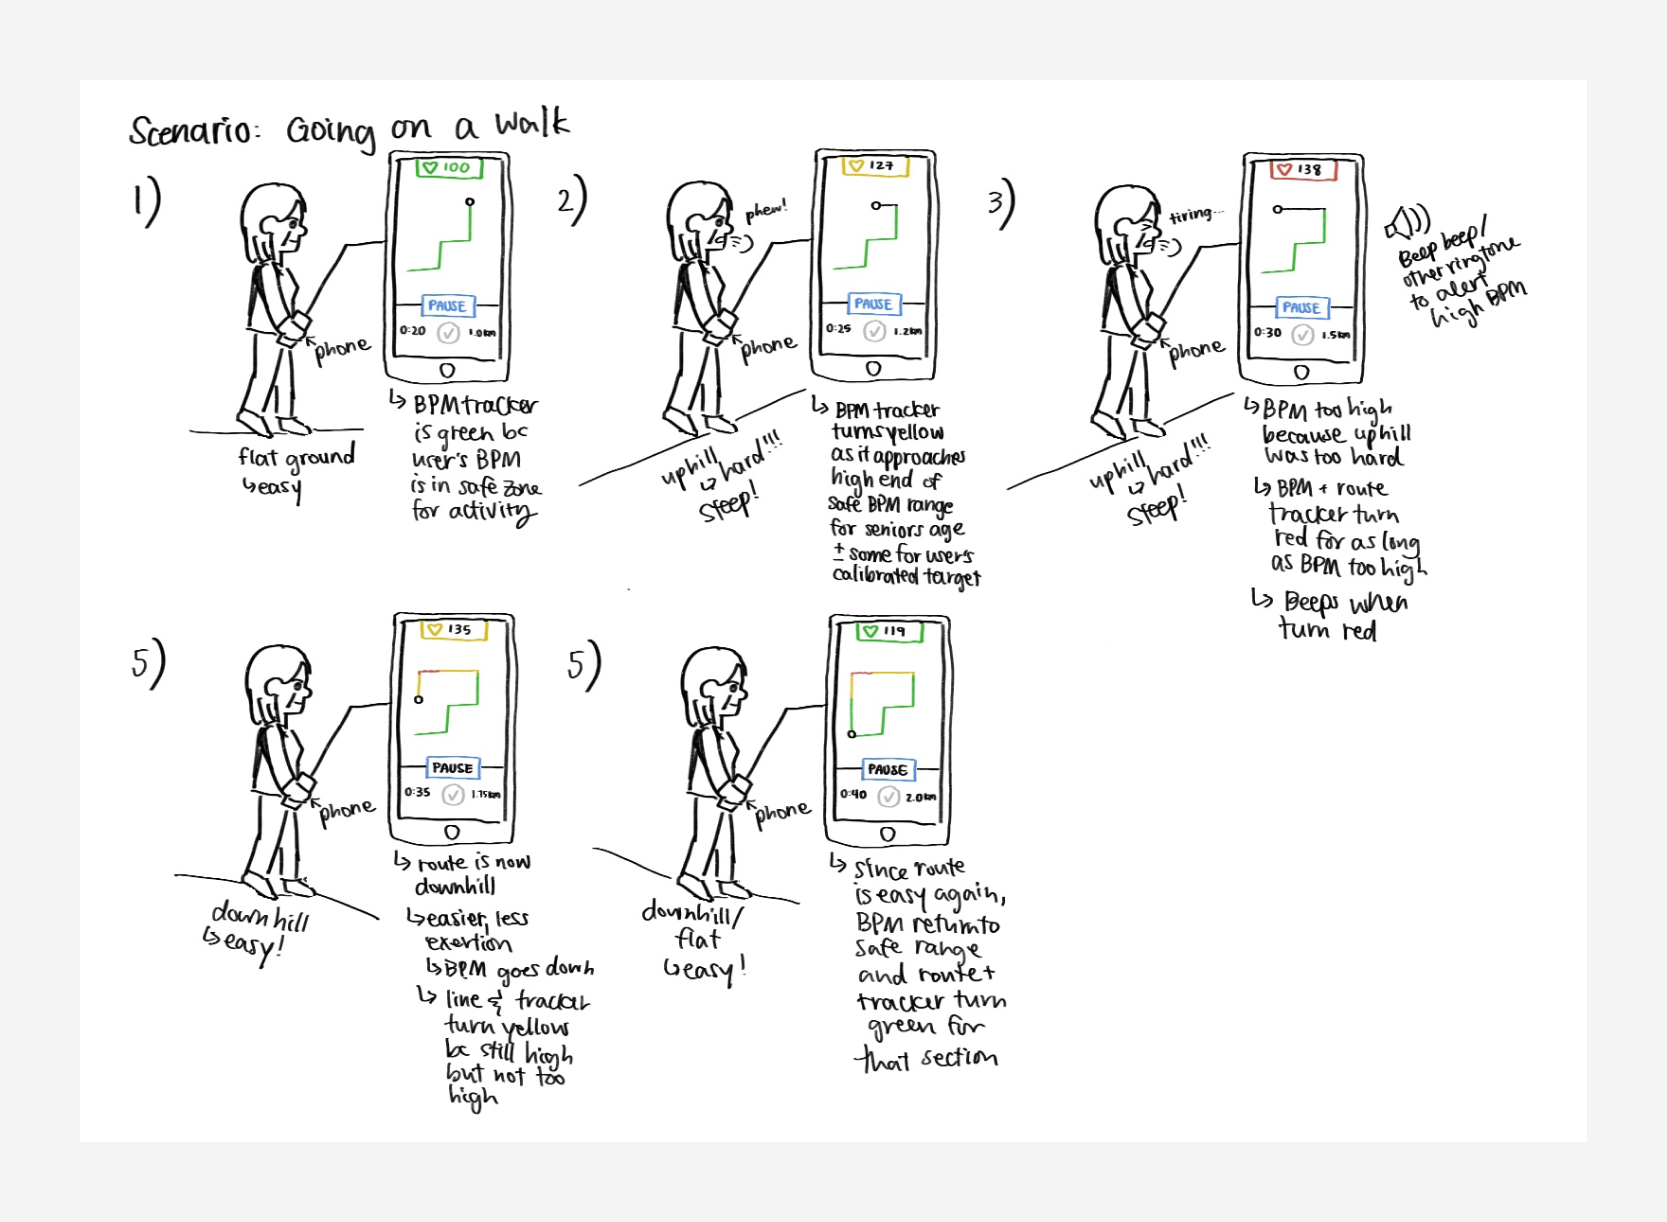 Scenario: Going on a walk
1)
100
PAUSE
0:20
1.0km
phone
flat ground
↳ easy
↳ BPM tracker
is green bc
user's BPM
is in safe zone
for activity
2)
phew!
127
PAUSE
0:25
1.2km
phone
uphill
↳ hard!!!
steep!
↳ BPM tracker
turns yellow
as it approaches
high end of
safe BPM range
for seniors age
± some for user's
calibrated target
3)
tiring...
138
PAUSE
0:30
1.5km
phone
Beep beep/
other ringtone
to alert
high BPM
uphill
↳ hard!!!
steep!
↳ BPM too high
because uphill
was too hard
↳ BPM + route
tracker turn
red for as long
as BPM too high
↳ Beeps when
turn red
5)
135
PAUSE
0:35
1.75km
phone
downhill
↳ easy!
↳ route is now
downhill
↳ easier, less
exertion
↳ BPM goes down
↳ line & tracker
turn yellow
bc still high
but not too
high
5)
119
PAUSE
0:40
2.0km
phone
downhill/
flat
↳ easy!
↳ since route
is easy again,
BPM return to
safe range
and route +
tracker turn
green for
that section